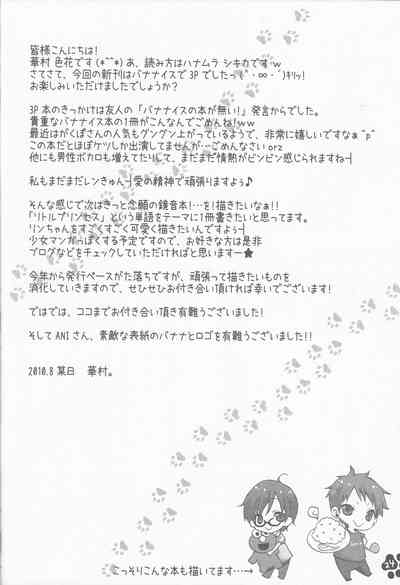 皆様こんにちは!
華村 色花です(*^^*)あ、読み方はハナムラ シキカですw
さてさて、今回の新刊はバナナイスで3Pでしたっ(`・∞・´)キリッ!
お楽しみいただけましたでしょうか?
3P本のきっかけは友人の「バナナイスの本が無い!」発言からでした。
貴重なバナナイス本の1冊がこんなんでごめんね!ww
最近はがくぽさんの人気もグングン上がっているようで、非常に嬉しいですなぁ^p^
この本だとほぼケツしか出演してませんが…ごめんなさい orz
他にも男性ボカロも増えてたりして、まだまだ情熱がビンビン感じられますね┤
私もまだまだレンきゅん┤愛の精神で頑張りますよぅ♪
そんな感じで次はきっと念願の鏡音本!…を!描きたいなぁ!!
「リトルプリンセス」という単語をテーマに1冊書きたいと思ってます。
リンちゃんをすごくすごく可愛く描きたいんですよう┤
少女マンガっぽくする予定ですので、お好きな方は是非
ブログなどをチェックしていただければと思いますー★
今年から発行ペースがた落ちですが、頑張って描きたいものを
消化していきますので、ぜひぜひお付き合い頂ければ幸いでございます!
ではでは、ココまでお付き合い頂き有難うございました!
そして ANI さん、素敵な表紙のバナナとロゴを有難うございました!!
2010.8 某日 華村。
こっそりこんな本も描いてます…→
27